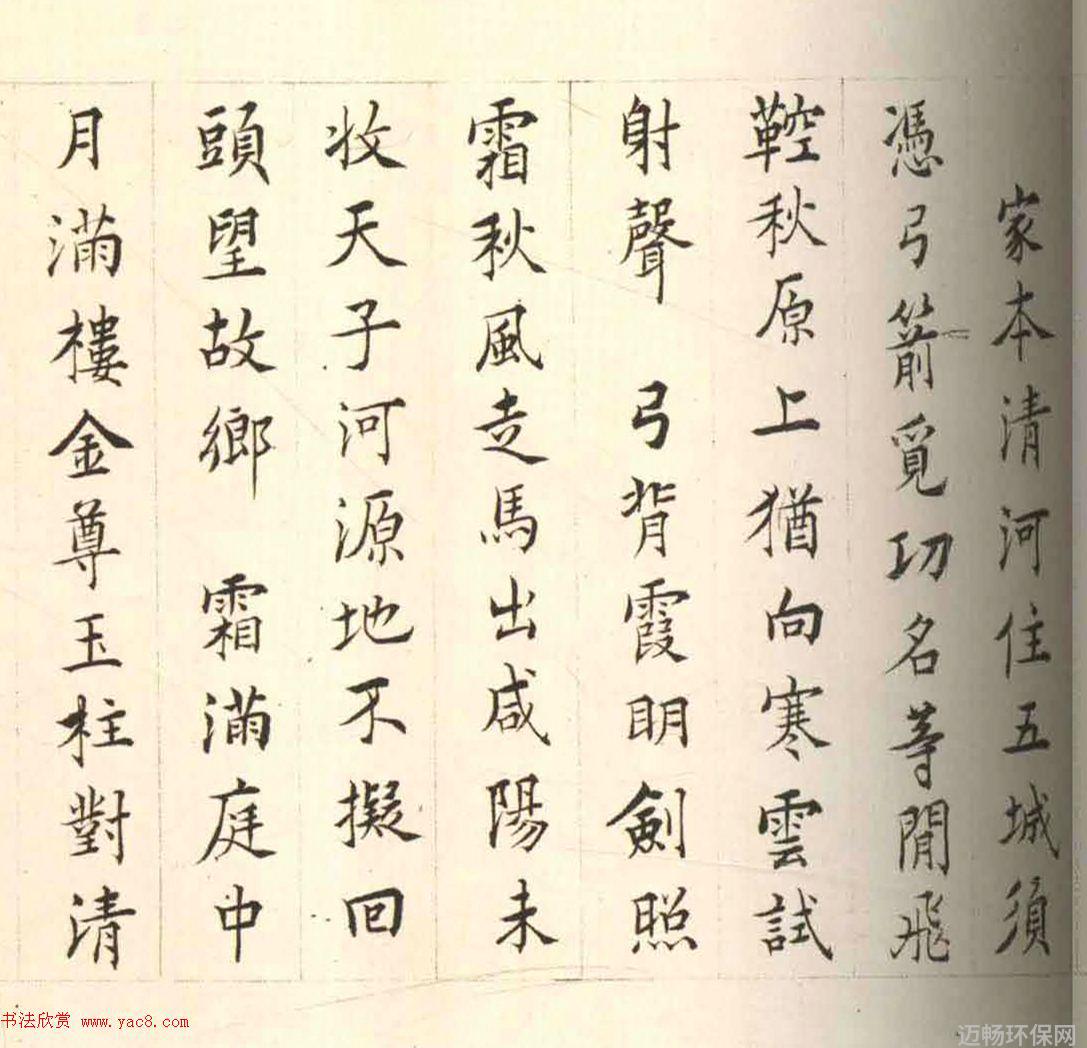 家本清河住五城須
憑弓箭覓功名等閒飛
鞚秋原上猶向寒雲試
射聲 弓背霞明劍照
霜秋風走馬出咸陽未
收天子河源地不擬回
頭望故鄉 霜滿庭中
月滿樓金尊玉柱對清
书法欣赏 www.yac8.com
迈畅环保网